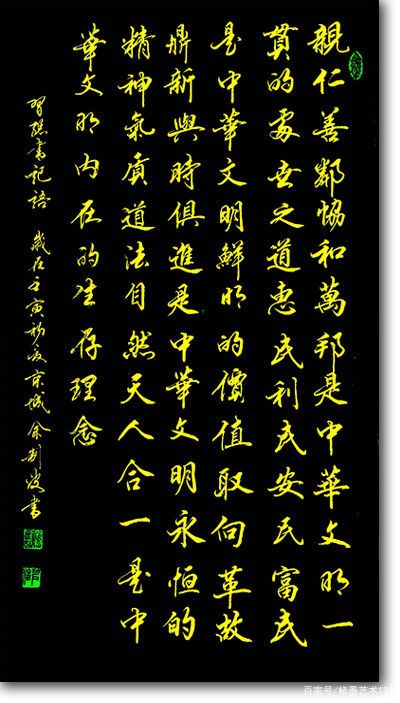 親仁善鄰協和萬邦是中華文明一
貫的處世之道惠民利民安民富民
是中華文明鮮明的價值取向革故
鼎新與時俱進是中華文明永恒的
精神氣質道法自然天人合一是中
華文明內在的生存理念
習總書記語 歲在壬寅初夏京城余剑波書
百家号/楮墨艺术12